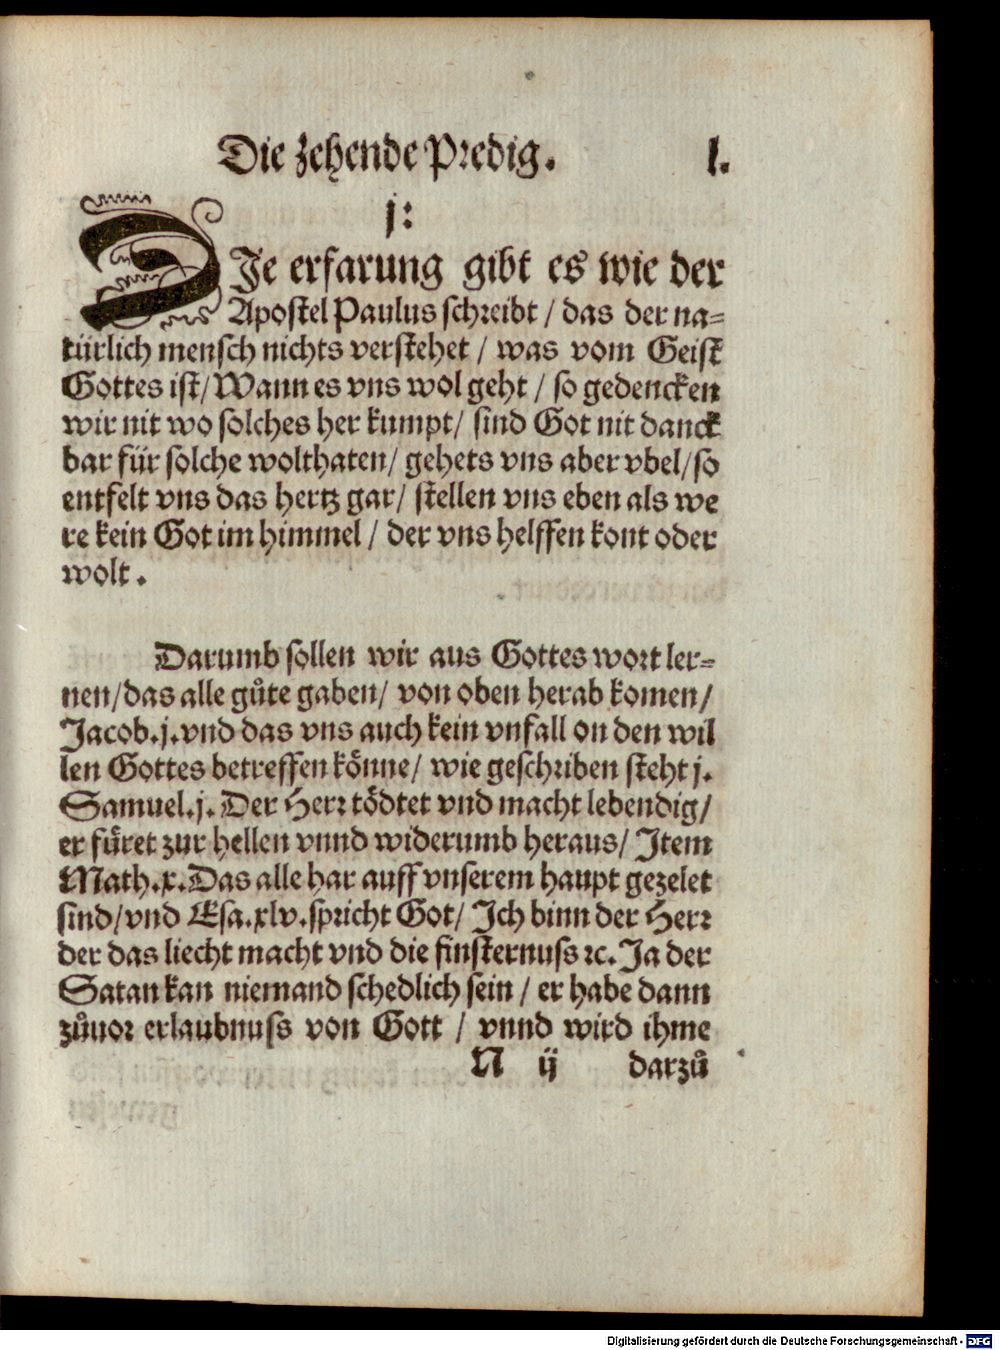 Die zehende Predig. l.
j:
DIe erfarung gibt es wie der
Apostel Paulus schreibt / das der na=
türlich mensch nichts verstehet / was vom Geist
Gottes ist / Wann es vns wol geht / so gedencken
wir nit wo solches her kumpt / sind Got nit danck
bar für solche wolthaten / gehets vns aber vbel / so
entfelt vns das hertz gar / stellen vns eben als we
re kein Got im himmel / der vns helffen kont oder
wolt.
Darumb sollen wir aus Gottes wort ler=
nen / das alle gůte gaben / von oben herab komen /
Jacob. j. vnd das vns auch kein vnfall on den wil
len Gottes betreffen könne / wie geschriben steht j.
Samuel. j. Der Herr tödtet vnd macht lebendig /
er füret zur hellen vnnd widerumb heraus / Item
Math. x. Das alle har auff vnserem haupt gezelet
sind / vnd Esa. xlv. spricht Got / Ich binn der Herr
der das liecht macht vnd die finsternuss ꝛc. Ja der
Satan kan niemand schedlich sein / er habe dann
zůuor erlaubnuss von Gott / vnnd wird ihme
N ij darzů
Digitalisierung gefördert durch die Deutsche Forschungsgemeinschaft - DFG